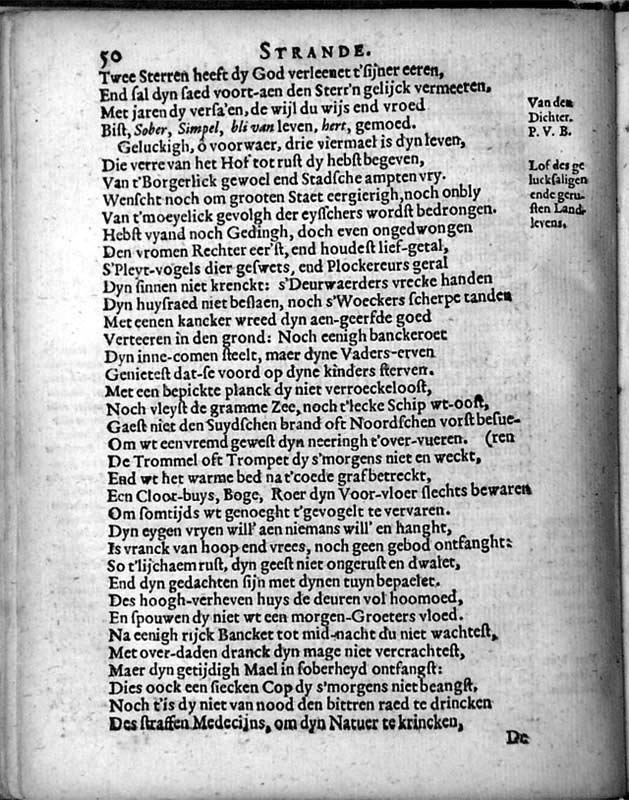 50 STRANDE.
Twee Sterren heeft dy God verleenet t'sijner eeren,
End sal dyn saed voort-aen den Sterr'n gelijck vermeeren,
Met jaren dy versa'en, de wijl du wijs end vroed
Bist, Sober, Simpel, bli van leven, hert, gemoed.
Geluckigh, ô voorwaer, drie viermael is dyn leven,
Die verre van het Hof tot rust dy hebst begeven,
Van t'Borgerlick gewoel end Stadsche ampten vry.
Wenscht noch om grooten Staet eergierigh, noch onbly
Van t'moeyelick gevolgh der eysschers wordst bedrongen.
Hebst vyand noch Gedingh, doch even ongedwongen
Den vromen Rechter eer'st, end houdest lief-getal,
S'Pleyt-vogels dier geswets, end Plockereurs geral
Dyn sinnen niet krenckt: s'Deurwaerders vrecke handen
Dyn huysraed niet beslaen, noch s'Woeckers scherpe tanden
Met eenen kancker wreed dyn aen-geerfde goed
Verteeren in den grond: Noch eenigh banckeroet
Dyn inne-comen steelt, maer dyne Vaders-erven
Genietest dat-se voord op dyne kinders sterven.
Met een bepickte planck dy niet verroeckeloost,
Noch vleyst de gramme Zee, noch t'lecke Schip wt-oost,
Gaest niet den Suydschen brand oft Noordschen vorst besue-
Om wt een vremd gewest dyn neeringh t'over-vueren. (ren
De Trommel oft Trompet dy s'morgens niet en weckt,
End wt het warme bed na t'coede graf betreckt,
Een Cloot-buys, Boge, Roer dyn Voor-vloer slechts bewaren
Om somtijds wt genoeght t'gevogelt te vervaren.
Dyn eygen vryen will' aen niemans will' en hanght,
Is vranck van hoop end vrees, noch geen gebod ontfanght:
So t'lijchaem rust, dyn geest niet ongerust en dwalet,
End dyn gedachten sijn met dynen tuyn bepaelet.
Des hoogh-verheven huys de deuren vol hoomoed,
En spouwen dy niet wt een morgen-Groeters vloed.
Na eenigh rijck Bancket tot mid-nacht du niet wachtest,
Met over-daden dranck dyn mage niet vercrachtest,
Maer dyn getijdigh Mael in soberheyd ontfangst:
Dies oock een siecken Cop dy s'morgens niet beangst,
Noch t'is dy niet van nood den bittren raed te drincken
Des straffen Medecijns, om dyn Natuer te krincken,
De
Van den
Dichter.
P. V. B.
Lof des ge
lucksaligen
ende geru-
sten Land-
levens.